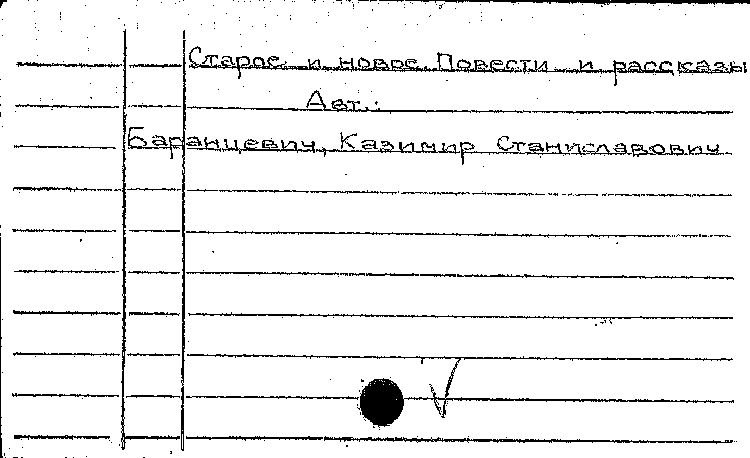 Старое и новое. Повести и рассказы
Авт.:
Баранцевич, Казимир Станиславович